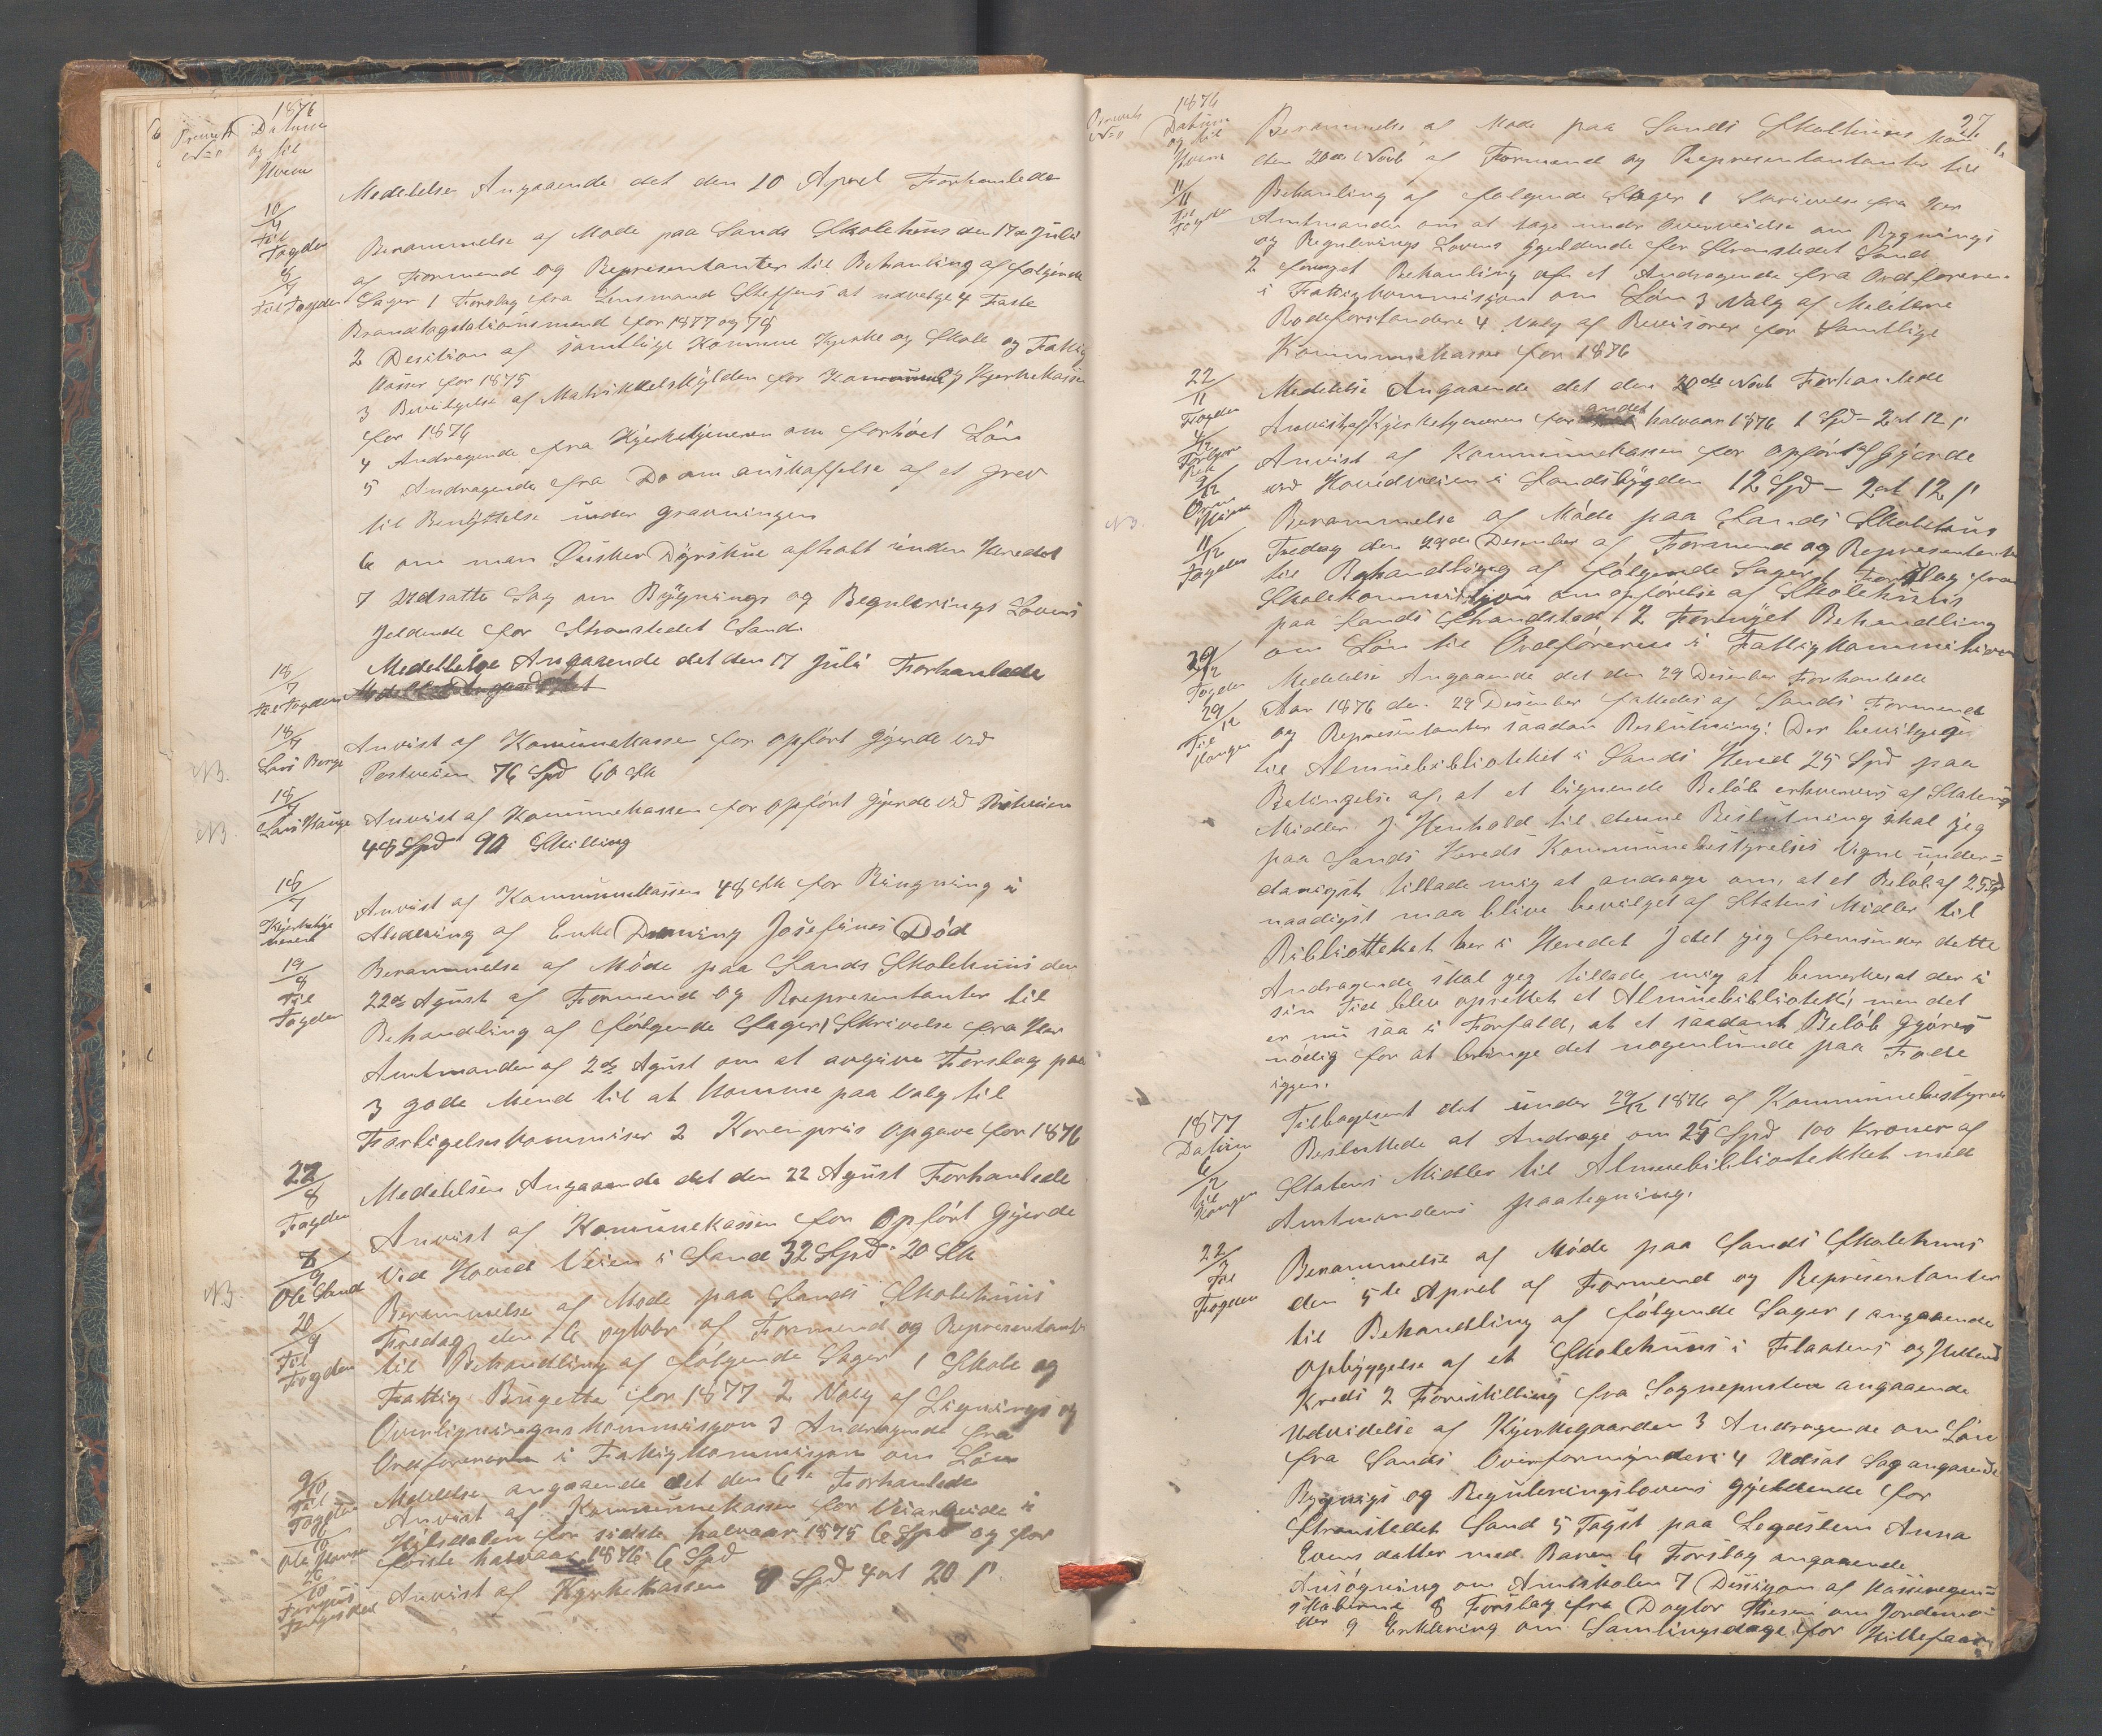 1876
Datum
og til
Hvem
Medelelse Angaaende det den 10 Aprel Forhanlede
10/4
Til
Fogden
Berammelse af Mode paa Sands Skolehuus den 17de Juli
af Formend og Representanter til Behanling af følgende
6/7
Til Fogden
Sager 1 Forslag fra Lensmand Steffens at udvelge 4 Faste
Brandtagstationsmend for 1877 og 78
2 Desition af samtlige Komune Kjerke og Skole og Fattig
Kasser for 1875
3 Bevilgelse af Matrikkelskylden for Komune og Kjerkekassen
for 1876
4 Andragende fra Kjerketjeneren om forhöiet Lön
5 Andragende fra Do om anskaffelse af et grev
til Benyttelse under gravningen
6 om man Önsker Dyrskue afholt inden Heredet
7 Udsatte Sag om Bygnings og Regulerings Lovens
Jeldende for Stranstedet Sand
18/7
Til Fogden
Medellelse Angaaende det den 17 Juli Forhanlede
18/7
Lars Berge
Anvist af Komunekassen for opfört gjerde ved
NB.
Postveien 76 Spd 60 Sk
18/7
Lars Hauge
Anvist af Komunekassen for opfört gjerde ved Postveien
NB.
48 Spd 90 Skilling
18/7
Kjerketje
neren
Anvist af Kommunekassen 48 Sk for Ringning i
Anledning af Enke Droning Josefines Död
19/8
Til
Fogden
Berammelse af Möde paa Sands Skolehuus den
22de Agust af Formend og Representanter til
Behandling af følgende Sager 1 Skrivelse fra Her
Amtmanden af 2de Agust om at avgive Forslag paa
3 gode Mend til at komme paa Valg til
Forligelseskommiser 2 Korenpris opgave for 1876
22/8
Fogden
Medelelsen Angaaende det den 22 Agust Forhanlede
Anvist af Komunekassen for Opfört Gjerde
8/9
Ole Sande
NB.
Ved Hoved Veien i Sand 32 Spd 20 Sk
20/9
Til
Fogden
Berammelse af Mode paa Sands Skolehuus
Fredag den 6 oytober af Formend og Representanter
til Behandling af følgende Sager 1 Skole og
Fattig Bugette for 1877 2 Valg af Lignings og
Overligningskommisjon 3 Andragende fra
Ordföreren i Fattigkommisjon om Lön
9/10
Til
Fogden
Medelelsen angaaende det den 6te Forhanlede
Anvist af Kommunekassen for Veiarbeide i
Ole Hansen
Hylsdalen for sidste halvaar 1875 6 Spd og for
förste halvaar 1876 6 Spd
26/10
Anvist af Kjerkekassen 9 Spd 4 ort 20 s
27
1876
Datum
og til
Hvem
Berammelse af Mode paa Sands Skolehuus
den 20de Novb af Formend og Representantanter til
11/11
Til
Fogden
Behanling af følgende Sager 1 Skrivelse fra Her
Amtmanden om at tage under Overveielse om Bygnings
og Regulerings Lovens gjeldende for Stranstedet Sand
2 fornyet Behanling af et Andragende fra Ordföreren
i Fattigkommisjon om Lön 3 Valg af Militere
Rodeforstandere 4 Valg af Revisorer for Samtlige
Kommunekasser for 1876
22/11
Fogden
Medelelse Angaaende det den 20de Novb Forhanlede
Anvist af Kjerketjeneren for andet halvaar 1876 1 Spd - 2 ort 12 s
Anvist af Kommunekassen for opfört af Gjerde
ved Hovedveien i Sandsbygden 12 Spd - 2 ort 12 s
NB.
11/12
Fogden
Berammelse af Möde paa Sands Skolehuus
Fredag den 29de Desember af Formend og Representanter
til Behandling af følgende Sager 1 Forslag fra
Skolekommissjon om opförelse af Skolehuus
paa Sands Strandsted 2 Fornyet Behandling
om Lön til Ordföreren i Fattigkommissionen
29/12
Fogden
Medelelse Angaaende det den 29 Desember Forhanlede
29/12
Til
Kongen
Aar 1876 den 29 Desember fattedes af Sands Formend
og Representanter saadan Beslutning: Der bevilges
til Almuebiblioteket i Sands Hered 25 Spd paa
Betingelse af, at et lignende Belöb erhverves af Statens
Midler. I Henhold til denne Beslutning skal jeg
paa Sands Hereds Kommunebestyrelses Vegne under=
danigst tillade mig at andrage om, at et Belöb af 25 Spd
naadigst maa blive bevilget af Statens Midler til
Bibliotteket her i Heredet I det jeg fremsender dette
Andragende skal jeg tillade mig at bemerke, at der i
sin Tid blev oprettet et Almuebibliotek, men det
er nu saa i Forfald, at et saadant Belöb gjöres
nödig for at bringe det nogenlunde paa Fode
iggen.
1877
Datum
6/12
Til
Kongen
Tilbagesent det under 29/12 1876 af Kommunebestyrelsen
Besluttede at Andrage om 25 Spd 100 Kroner af
Statens Midler til Almuebibliotekket med
Amtmandens paategning.
22/3
Til
Fogden
Berammelse af Möde paa Sands Skolehuus
den 5te Aprel af Formend og Representanter
til Behandling af følgende Sager 1 angaaende
opbyggelse af et Skolehuus i Flaatens og
Kreds 2 Forestilling fra Sognepresten angaaende
Udvidelse af Kjerkegaarden 3 Andragende om Lön
fra Sands Overformynderi 4 Udsat Sag angaaende
Bygnigs og Reguleringslovens gjeldende for
Stranstedet Sand 5 Tagst paa Legdslem Anna
Evensdatter med Barn 6 Forslag angaaende
Ansögning om Amtskolen 7 Desisjon af Kasseregen
skaberne 8 Forslag fra Doytor Thesen om Jordemo
der 9 Erklering om Samlingsdage for